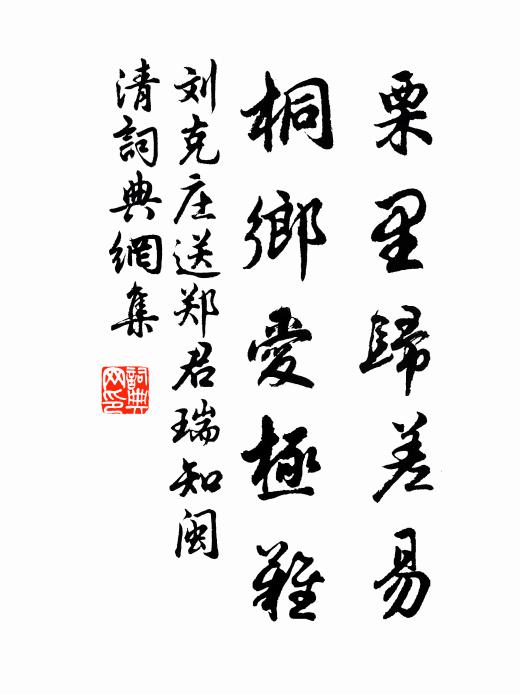 栗里歸差易
桐鄉愛極難
刘克庄送郑君瑞知闽
清詞典網集
詞典网印